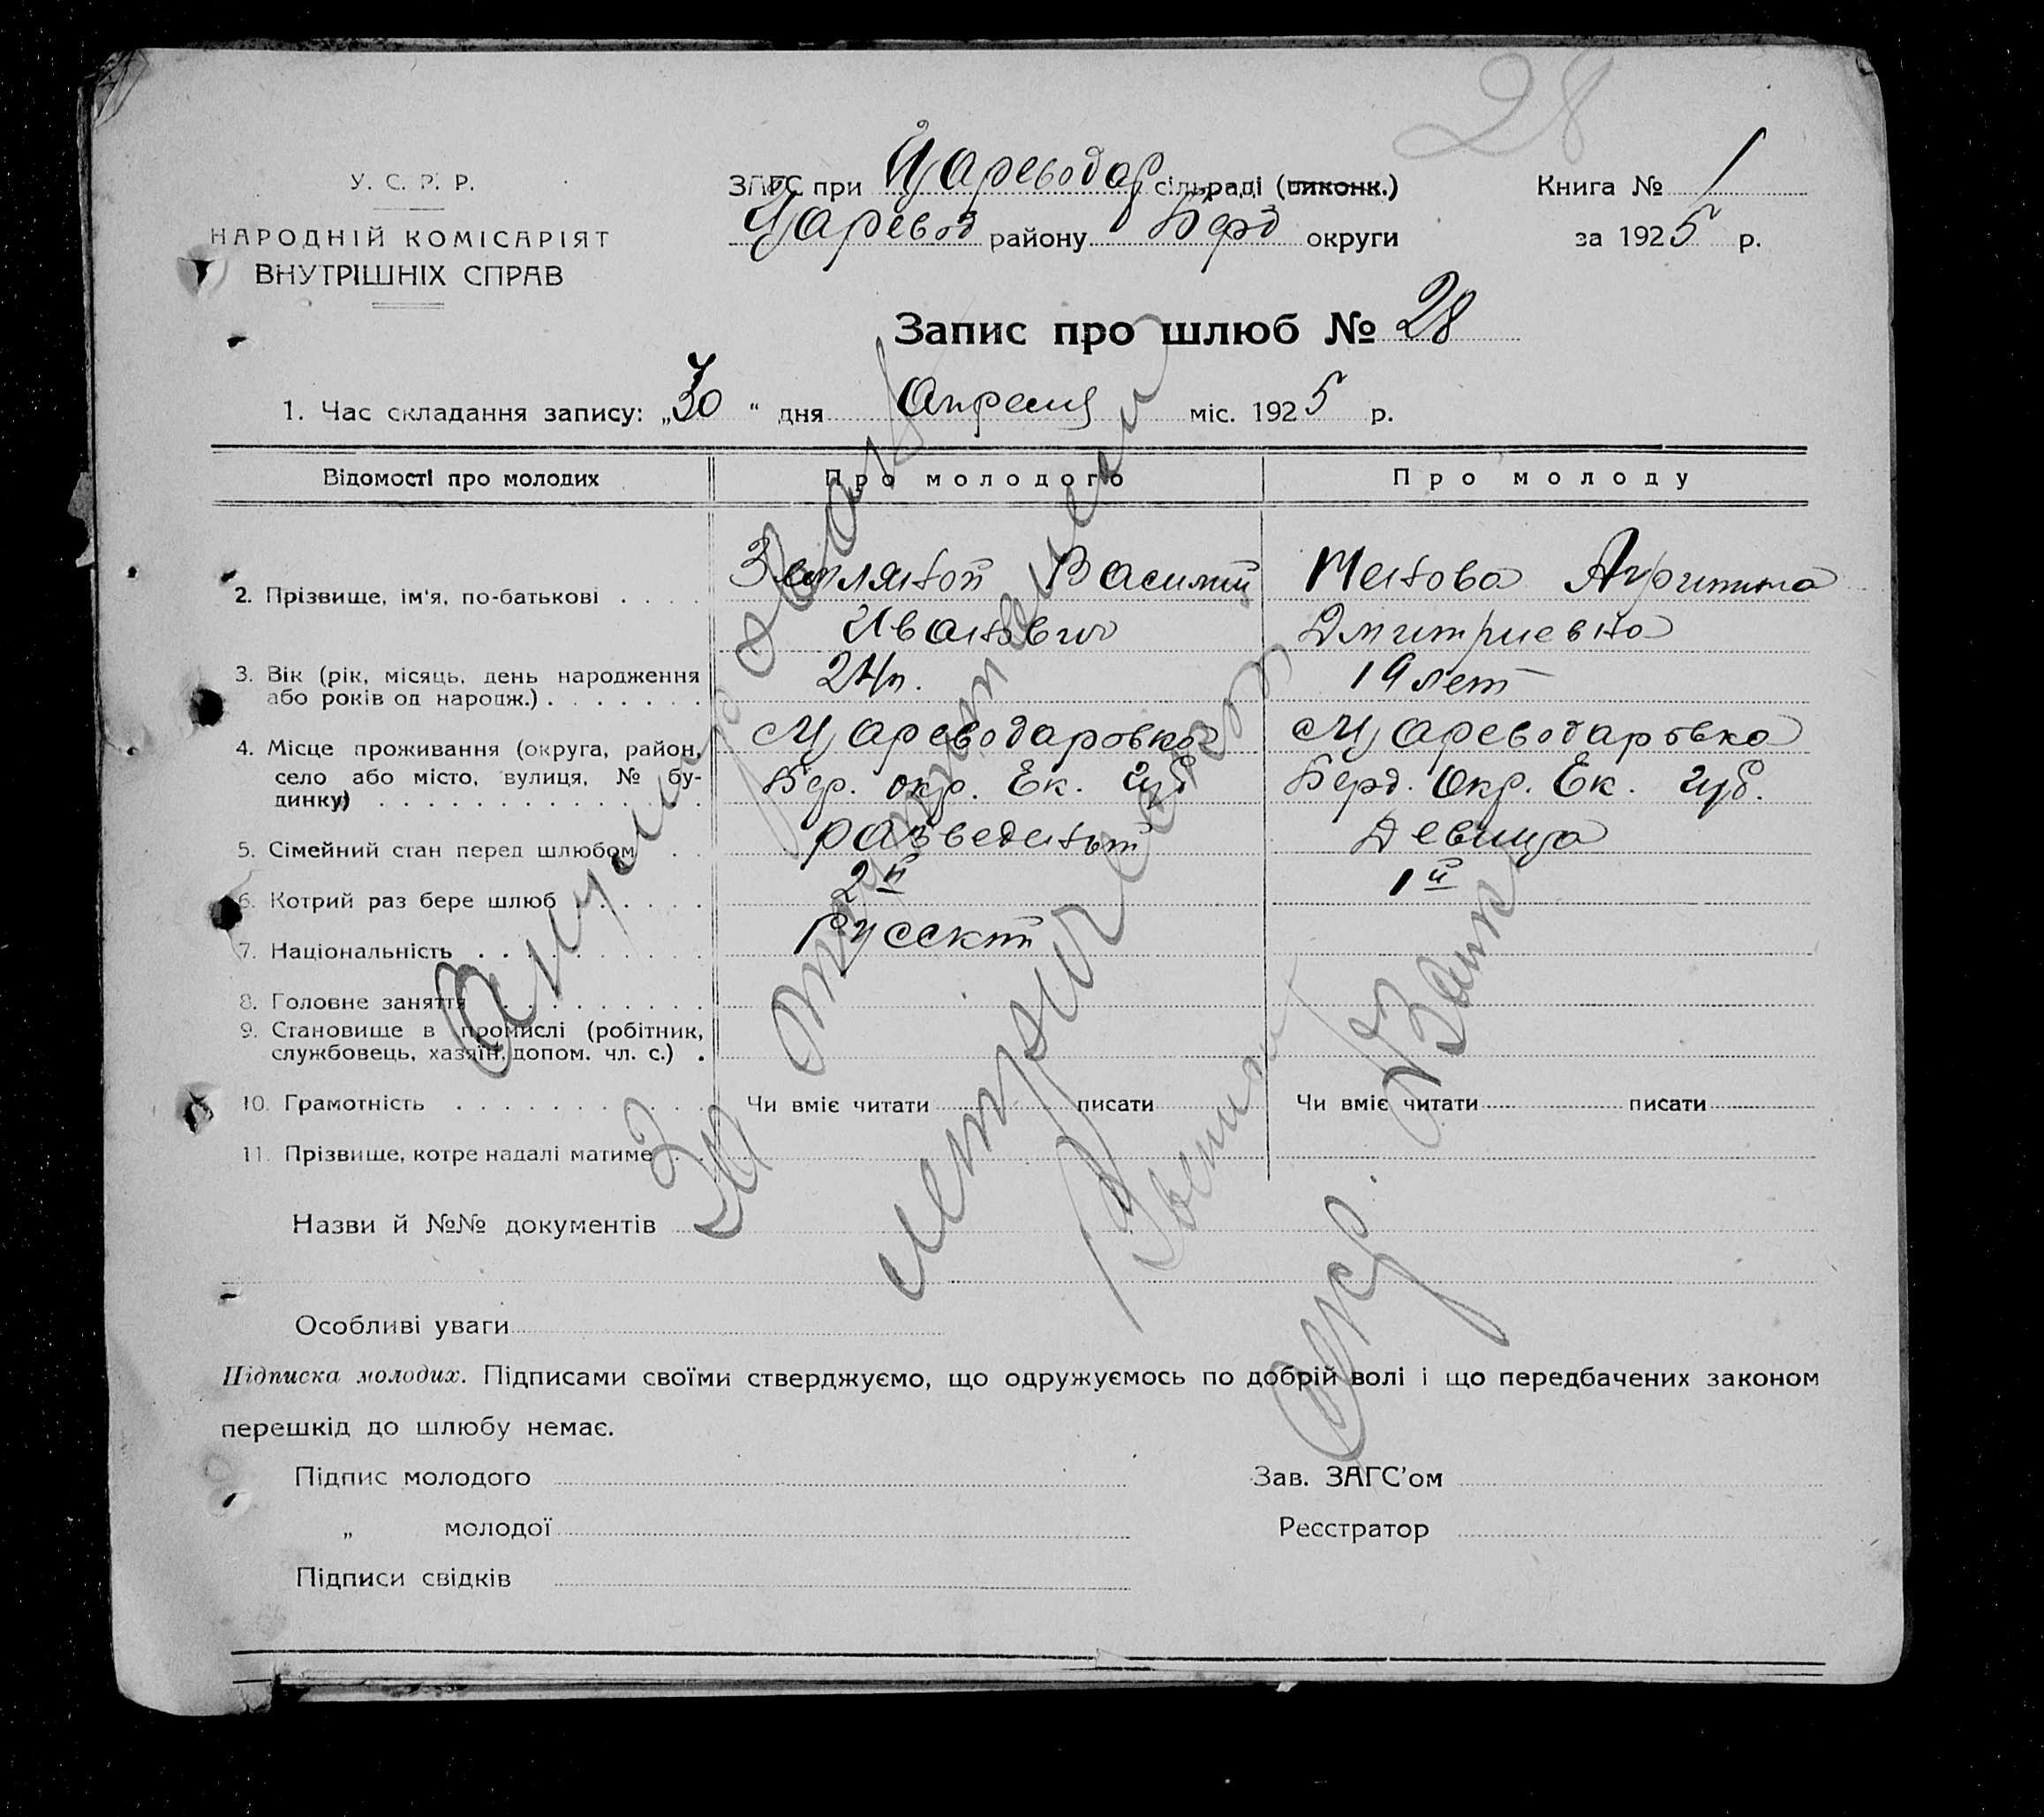 28
У. С. Р. Р.
НАРОДНІЙ КОМІСАРІЯТ
ВНУТРІШНІХ СПРАВ
ЗАГС при Цареводар сільраді (виконк.)
Царевод району Берд округи
Книга № 1
за 1925 р.
Запис про шлюб № 28
1. Час складання запису: „30“ дня Апреля міс. 1925 р.
Відомості про молодих Про молодого Про молоду
2. Прізвище, ім'я, по-батькові . . . . Василий
Иванович Дмитриевна
3. Вік (рік, місяць, день народження
або років од народж.) . . . . . . . 24 л. 19 лет
4. Місце проживання (округа, район, с Цареводаровка с Цареводаровка
село або місто, вулиця, № бу- Бер. окр. Ек. губ Берд. Окр. Ек. губ.
динку) . . . . . . . . . . . . . .
5. Сімейний стан перед шлюбом . . разведеный Девица
6. Котрий раз бере шлюб . . . . . . 2й 1й
7. Національність . . . . . . . . . . Русский
8. Головне заняття . . . . . . . . .
9. Становище в промислі (робітник,
службовець, хазяїн, допом. чл. с.) .
10. Грамотність . . . . . . . . . . . Чи вміє читати писати Чи вміє читати писати
11. Прізвище, котре надалі матиме . .
Назви й №№ документів
Особливі уваги
Підписка молодих. Підписами своїми стверджуємо, що одружуємось по добрій волі і що передбачених законом
перешкід до шлюбу немає.
Підпис молодого Зав. ЗАГС'ом
„ молодої Реєстратор
Підписи свідків
За